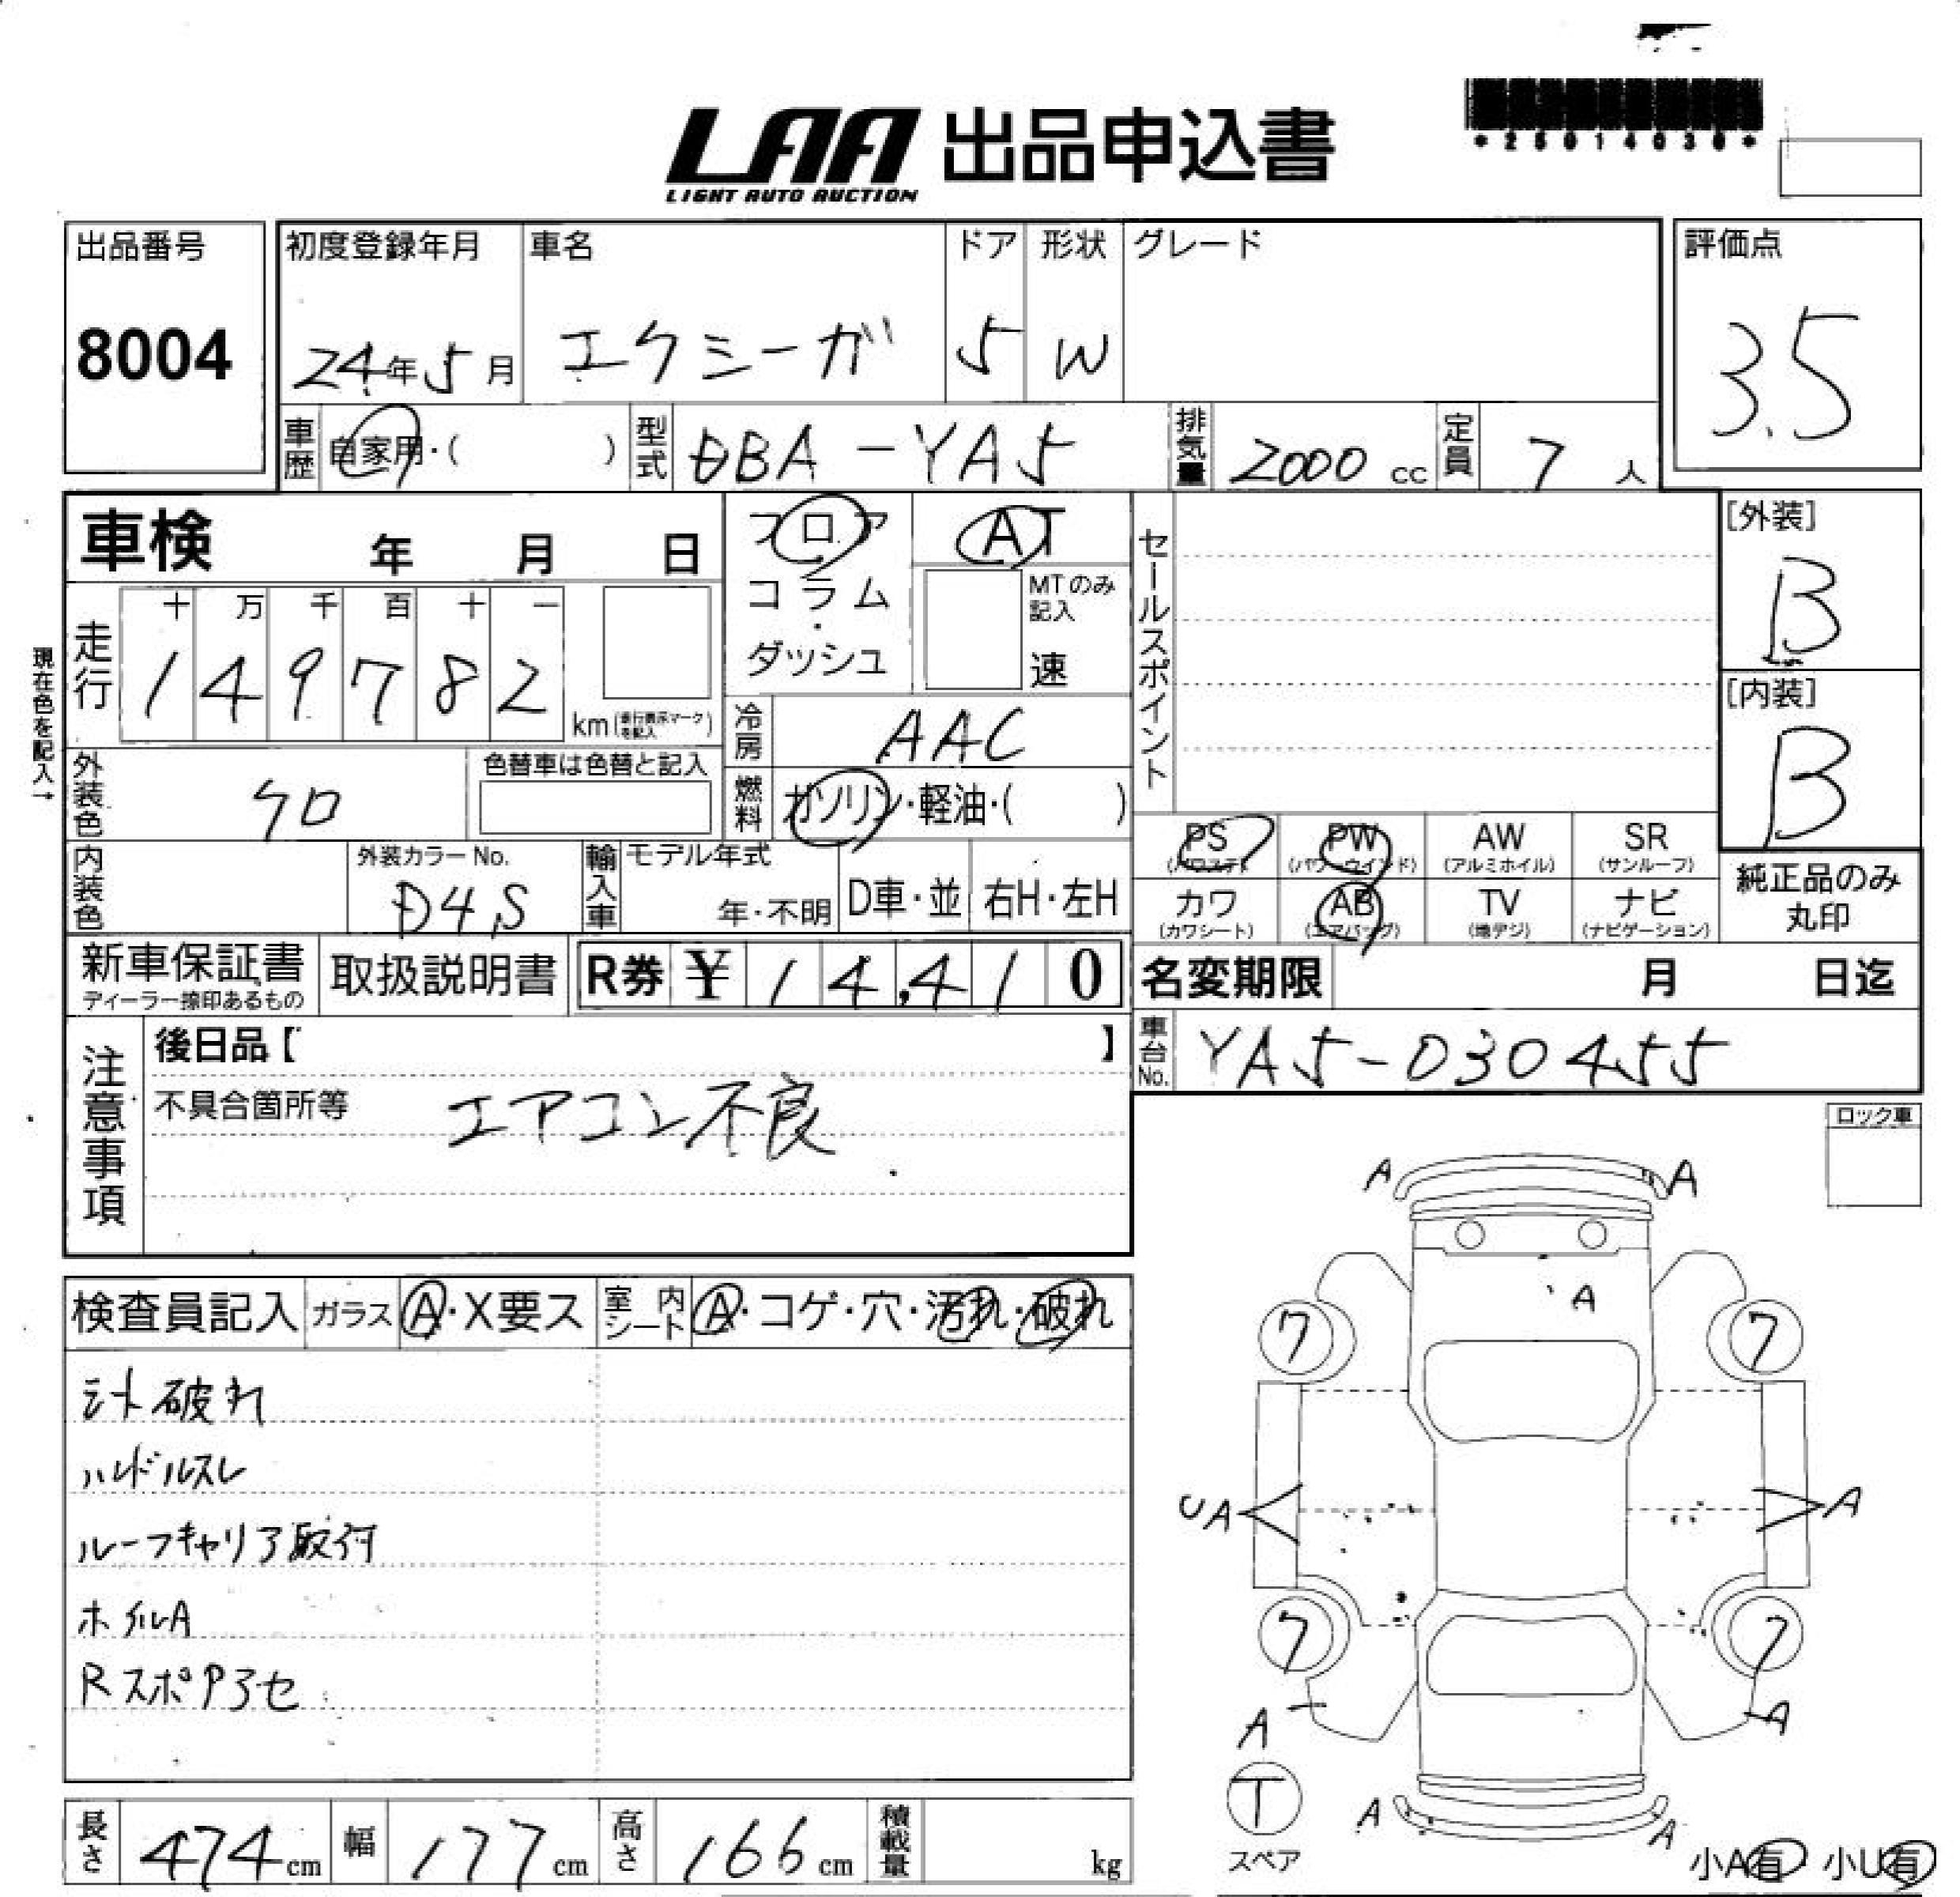 *25014030*
LAA 出品申込書
LIGHT AUTO AUCTION
出品番号 8004
初度登録年月 24年5月
車名 エクシーガ
ドア 5
形状 W
グレード
評価点 3.5
車歴 自家用・( )
型式 DBA-YA5
排気量 2000 cc
定員 7 人
車検 年 月 日
フロア
コラム
・
ダッシュ
AT
MTのみ記入
速
セールスポイント
[外装] B
[内装] B
現在色を記入→
走行 十 万 千 百 十 一
1 4 9 7 8 2 km (走行表示マークを記入)
冷房 AAC
燃料 ガソリン・軽油・( )
外装色 クロ
色替車は色替と記入
内装色
外装カラーNo. D4S
輸入車 モデル年式
年・不明 D車・並 右H・左H
PS (パワステ) PW (パワーウインド) AW (アルミホイル) SR (サンルーフ)
カワ (カワシート) AB (エアバッグ) TV (地デジ) ナビ (ナビゲーション)
純正品のみ
丸印
新車保証書
ディーラー捺印あるもの
取扱説明書
R券 ¥ 14,410
名変期限 月 日迄
車台No. YA5-030455
注意事項
後日品【 】
不具合箇所等 エアコン不良
ロック車
検査員記入 ガラス A・X要ス 室内シート A・コゲ・穴・汚れ・破れ
シート破れ
ハンドルスレ
ルーフキャリア取付
ホイルA
RスポPアセ
A A
A
7 7
UA A
7 7
A A
T
スペア
A A
小A有 小U有
長さ 474 cm 幅 177 cm 高さ 166 cm 積載量 kg